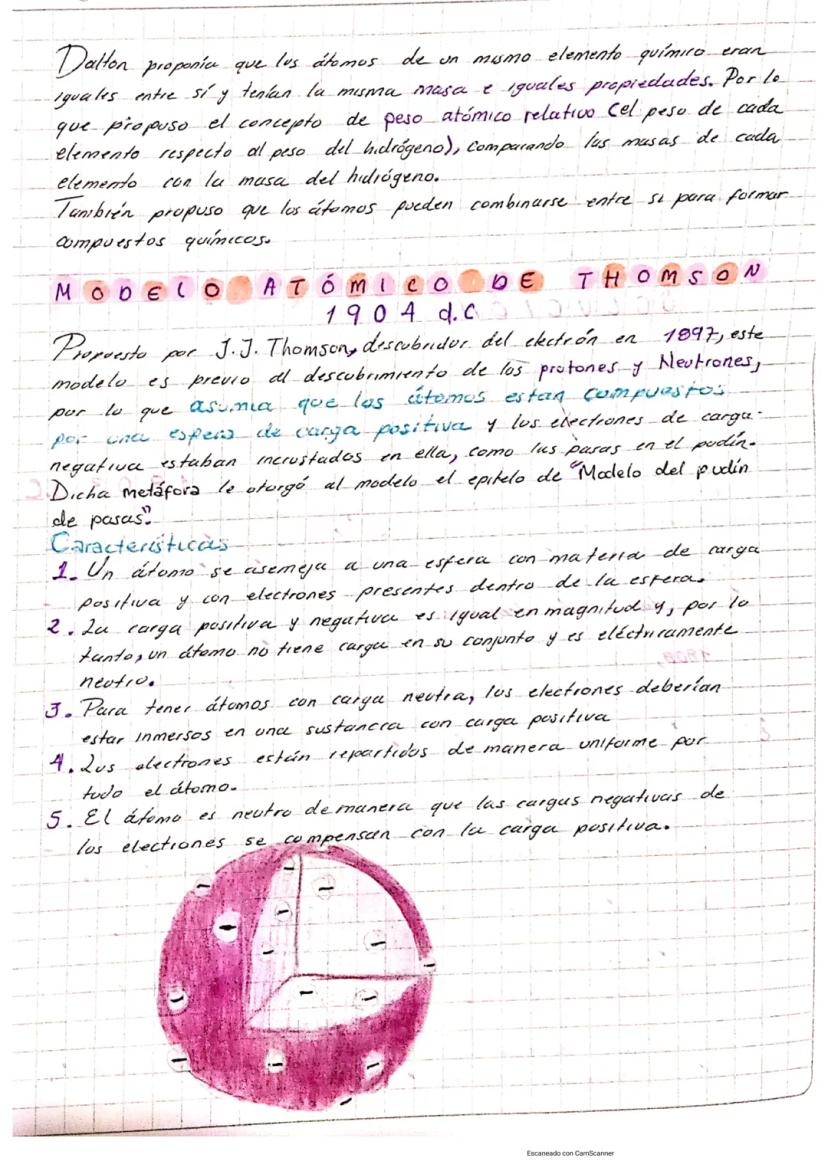 Dalton proponía que los átomos de un mismo elemento químico eran
iguales entre sí y tenían la misma masa e iguales propiedades. Por lo
que propuso el concepto de peso atómico relativo (el peso de cada
elemento respecto al peso del hidrógeno), comparando las masas de cada
elemento con la masa del hidrógeno.
También propuso que los átomos pueden combinarse entre si para formar
compuestos químicos.
MODELO ATÓMICO DE THOMSON
1904 d.C
Propuesto por J.J. Thomson, descubridor del electrón en 1897, este
modelo es previo al descubrimiento de los protones y Neutrones,
por lo que asumía que los átomos estan compuestos
por una esfera de carga positiva y los electrones de carga
negativa estaban incrustados en ella, como las pasas en el pudín.
Dicha metáfora le otorgó al modelo el epitelo de "Modelo del pudín
de pasas".
Características
1. Un átomo se asemeja a una esfera con materia de carga
positiva y con electrones presentes dentro de la esfera.
2. La carga positiva y negativa es igual en magnitud y, por lo
tanto, un átomo no tiene carga en su conjunto y es eléctricamente
neutro.
3. Para tener átomos con carga neutra, los electrones deberían
estar inmersos en una sustancia con carga positiva
4. Los electrones están repartidos de manera uniforme por
todo el átomo.
5. El átomo es neutro de manera que las cargas negativas de
los electrones se compensan con la carga positiva.
Escaneado con CamScanner